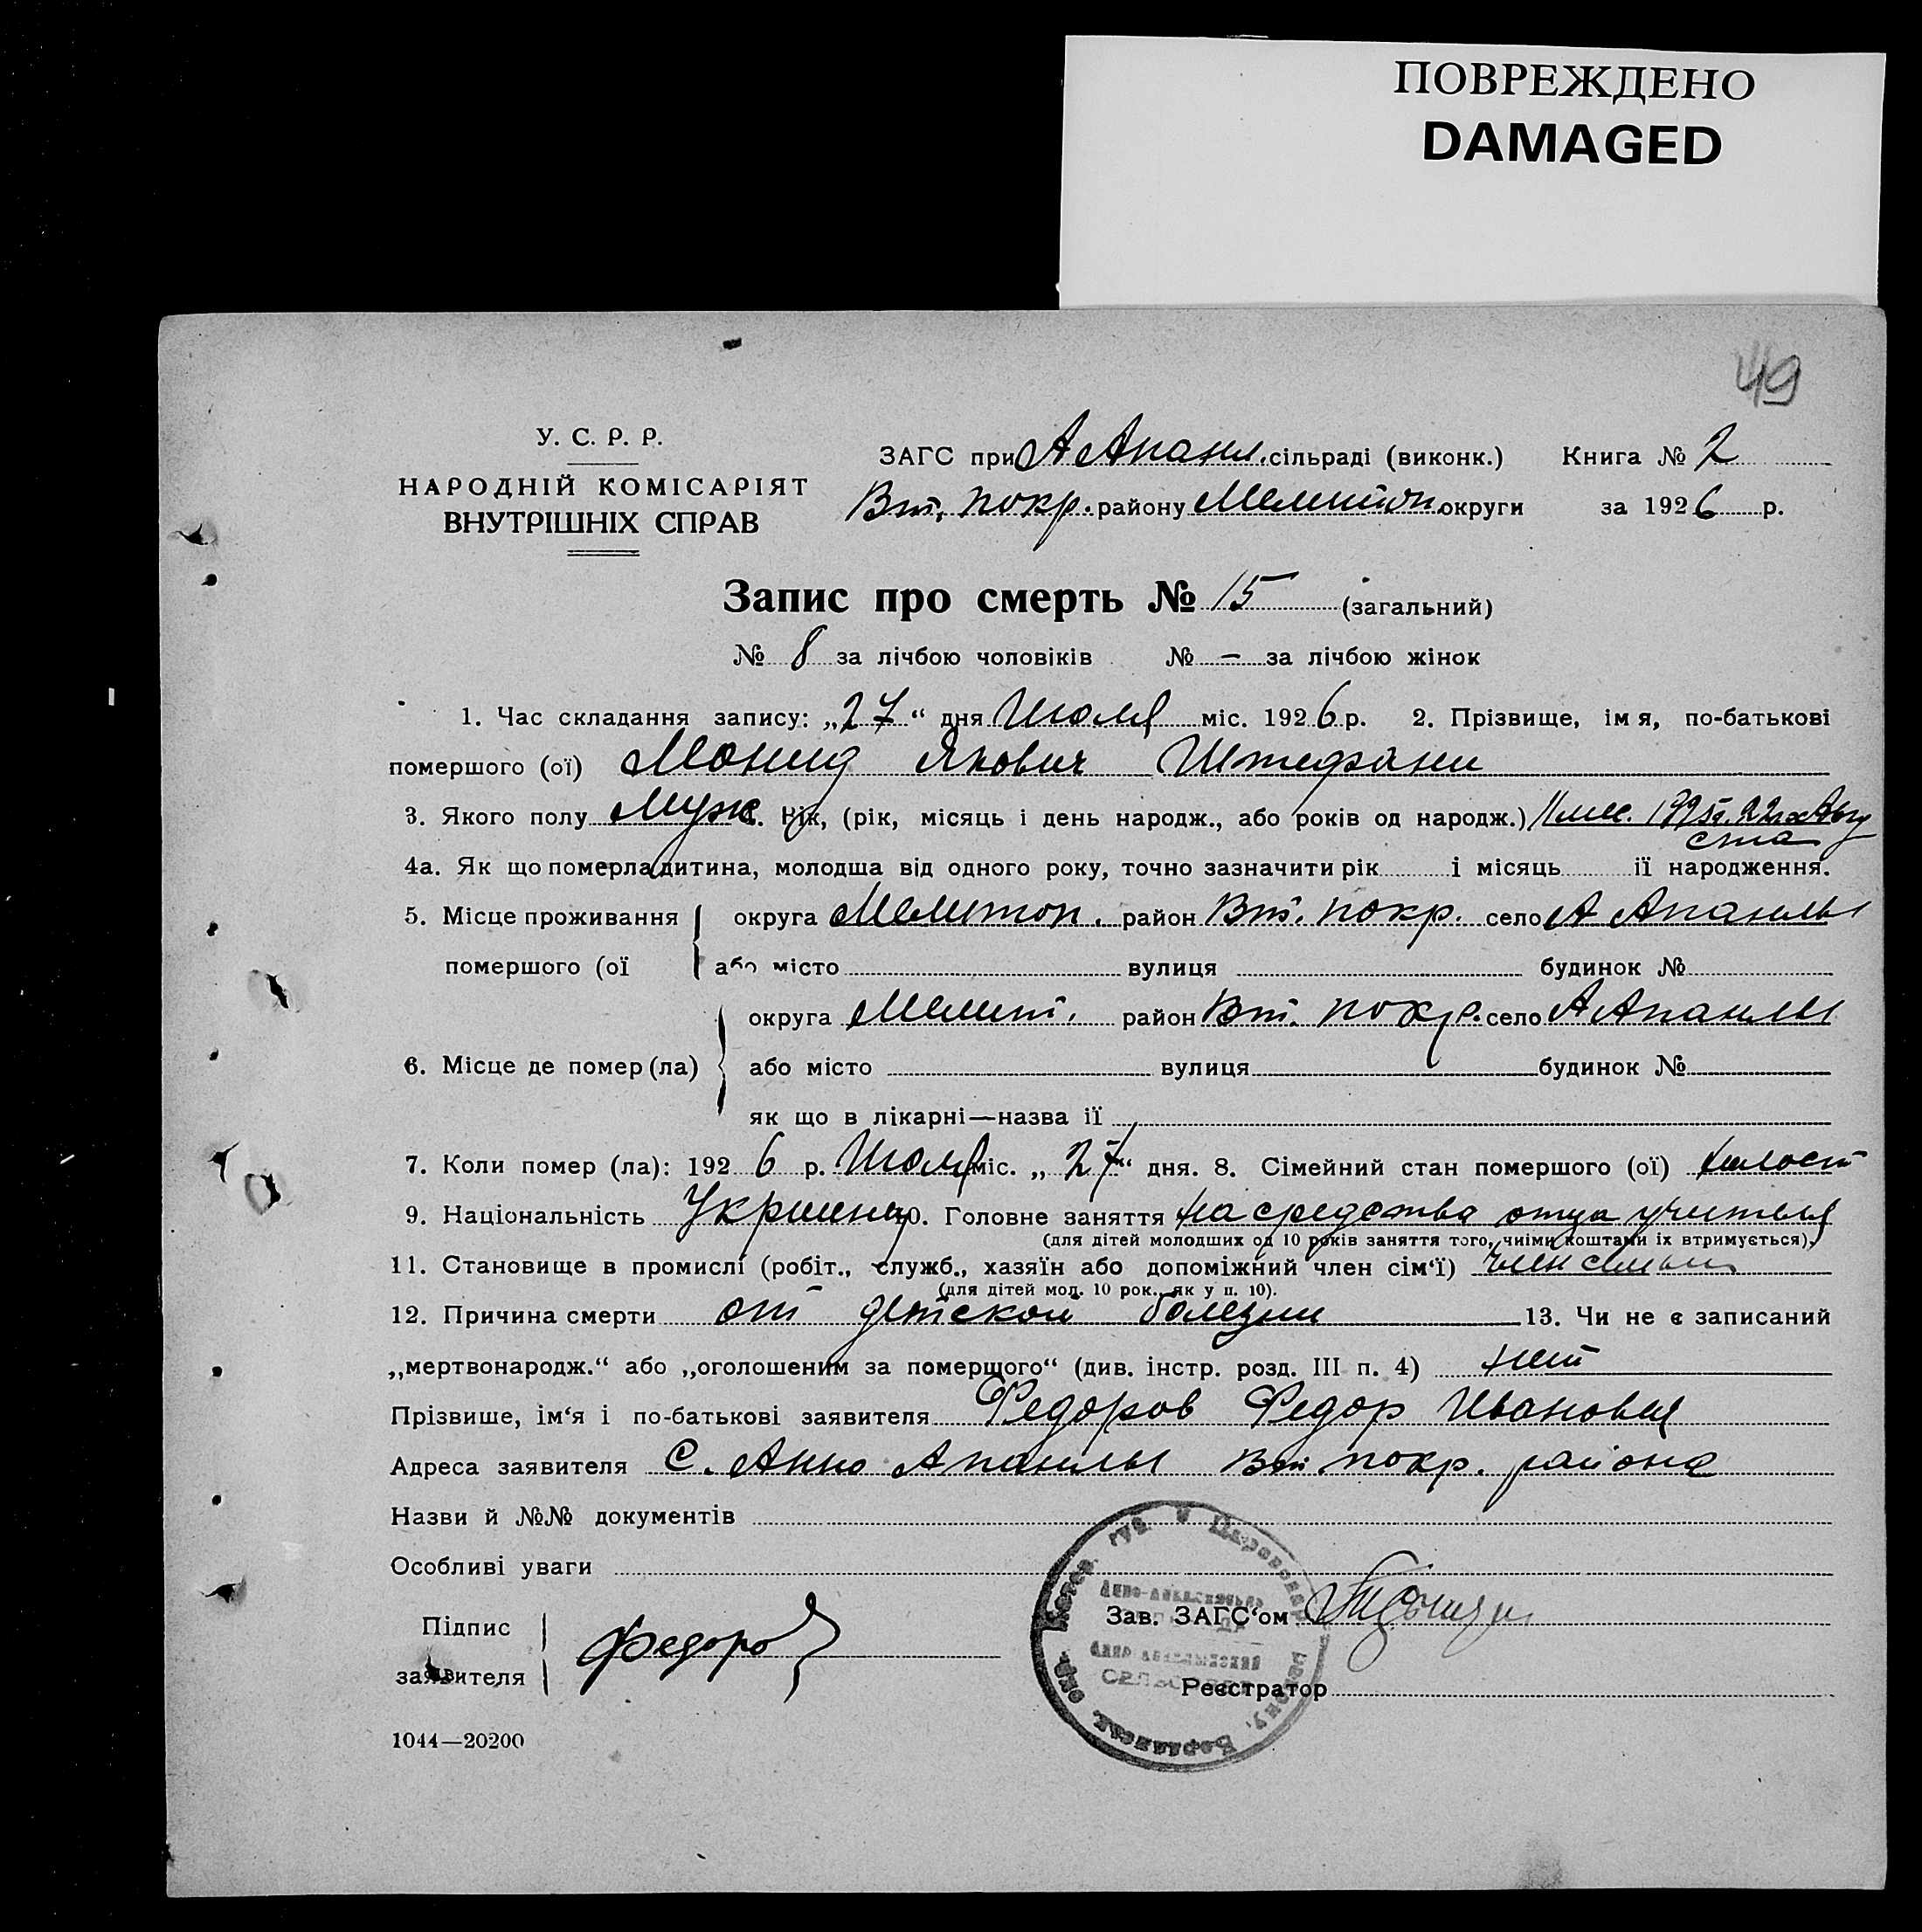 ПОВРЕЖДЕНО
DAMAGED
49
У. С. Р. Р.
НАРОДНІЙ КОМІСАРІЯТ
ВНУТРІШНІХ СПРАВ
ЗАГС при А Апанл. сільраді (виконк.) Книга № 2
Вт. покр. району Мелитоп. округи за 1926 р.
Запис про смерть № 15 (загальний)
№ 8 за лічбою чоловіків № — за лічбою жінок
1. Час складання запису: „27“ дня Июля міс. 1926 р. 2. Прізвище, імя, по-батькові
помершого (ої) Якович Штефани
3. Якого полу Муж. Вік, (рік, місяць і день народж., або років од народж.) 11 мес. 1925г. 22го Авгу
ста
4а. Як що померла дитина, молодша від одного року, точно зазначити рік і місяць її народження.
5. Місце проживання округа Мелитоп. район Вт. покр. село А Апанлы
помершого (ої або місто вулиця будинок №
округа Мелит. район Вт. покр. село А Апанлы
6. Місце де помер (ла) або місто вулиця будинок №
як що в лікарні—назва її
7. Коли помер (ла): 1926 р. Июля міс. „27“ дня. 8. Сімейний стан помершого (ої) холост
9. Національність Украинец 10. Головне заняття на средства отца учителя
(для дітей молодших од 10 років заняття того, чиїми коштами їх втримується).
11. Становище в промислі (робіт., служб., хазяїн або допоміжний член сім‘ї) член семьи
(для дітей мол. 10 рок., як у п. 10).
12. Причина смерти от детской болезни 13. Чи не є записаний
„мертвонародж.“ або „оголошеним за померщого“ (див. інстр. розд. III п. 4) нет
Прізвише, ім‘я і по-батькові заявителя Федоров Федор Иванович
Адреса заявителя С. Анно Апанлы Вт покр. района
Назви й №№ документів
Особливі уваги
Підпис
заявителя Федоров
Зав. ЗАГС‘ом
Реєстратор
1044—20200